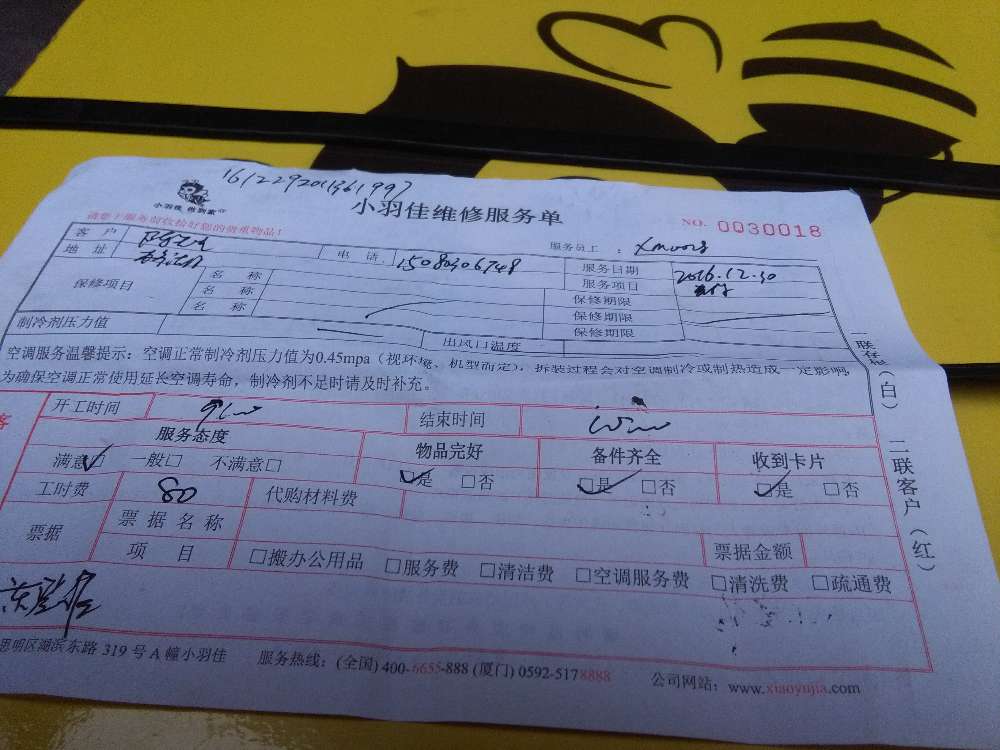 161229201361997
小羽佳 做到家
小羽佳维修服务单
NO. 0030018
请您于服务前收拾好您的贵重物品!
服务员工: Xm0013
客 户 电 话 15080306748 服务日期 2016.12.30
地 址 服务项目
保修项目 名 称 保修期限
名 称 保修期限
名 称 保修期限
制冷剂压力值 出风口温度
空调服务温馨提示: 空调正常制冷剂压力值为0.45mpa (视环境、机型而定), 拆装过程会对空调制冷或制热造成一定影响,
为确保空调正常使用延长空调寿命, 制冷剂不足时请及时补充。
客
开工时间 结束时间
服务态度 物品完好 备件齐全 收到卡片
满意□ 一般□ 不满意□ □是 □否 □是 □否 □是 □否
工时费 80 代购材料费
票据 票 据 名 称 票据金额
项 目 □搬办公用品 □服务费 □清洁费 □空调服务费 □清洗费 □疏通费
思明区湖滨东路 319 号 A 幢小羽佳 服务热线: (全国) 400-6655-888 (厦门) 0592-5178888 公司网站: www.xiaoyujia.com
一联存根(白) 二联客户(红)